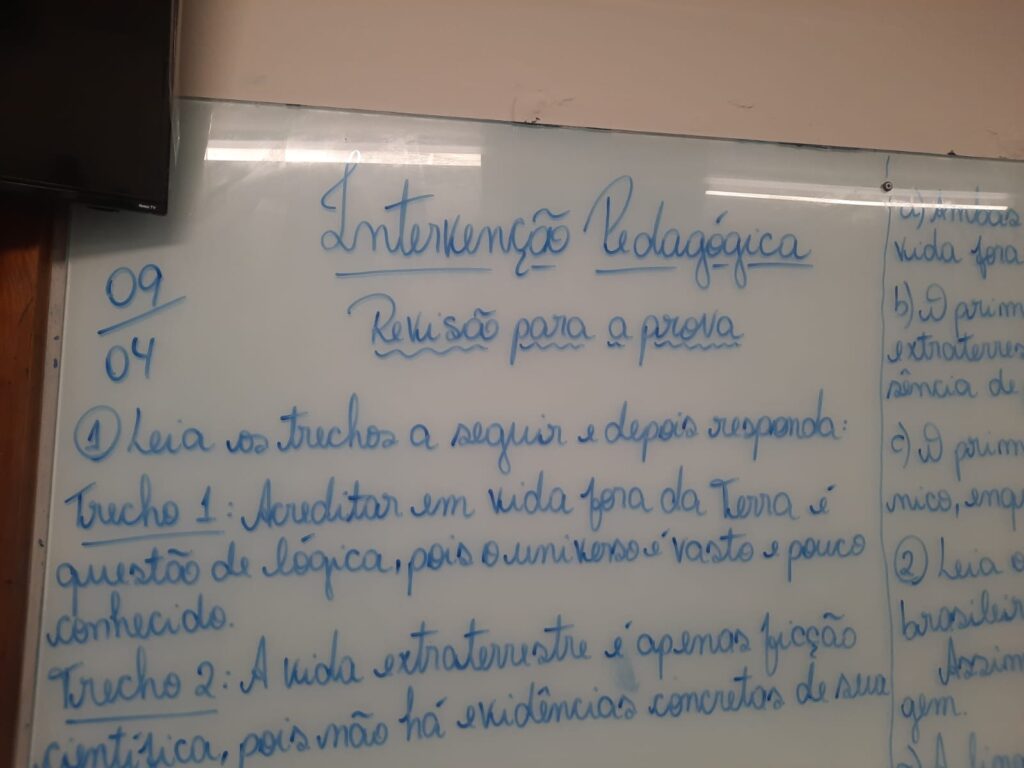 Intervenção Pedagógica
09/04
Revisão para a prova
① Leia os trechos a seguir e depois responda:
Trecho 1: Acreditar em vida fora da Terra é
questão de lógica, pois o universo é vasto e pouco
conhecido.
Trecho 2: A vida extraterrestre é apenas ficção
científica, pois não há evidências concretas de sua
a) Ambos
vida fora
b) O prim
extraterres
sência de
c) O prim
mico, enq
② Leia o
brasileir
Assim
gem.
a) A ling